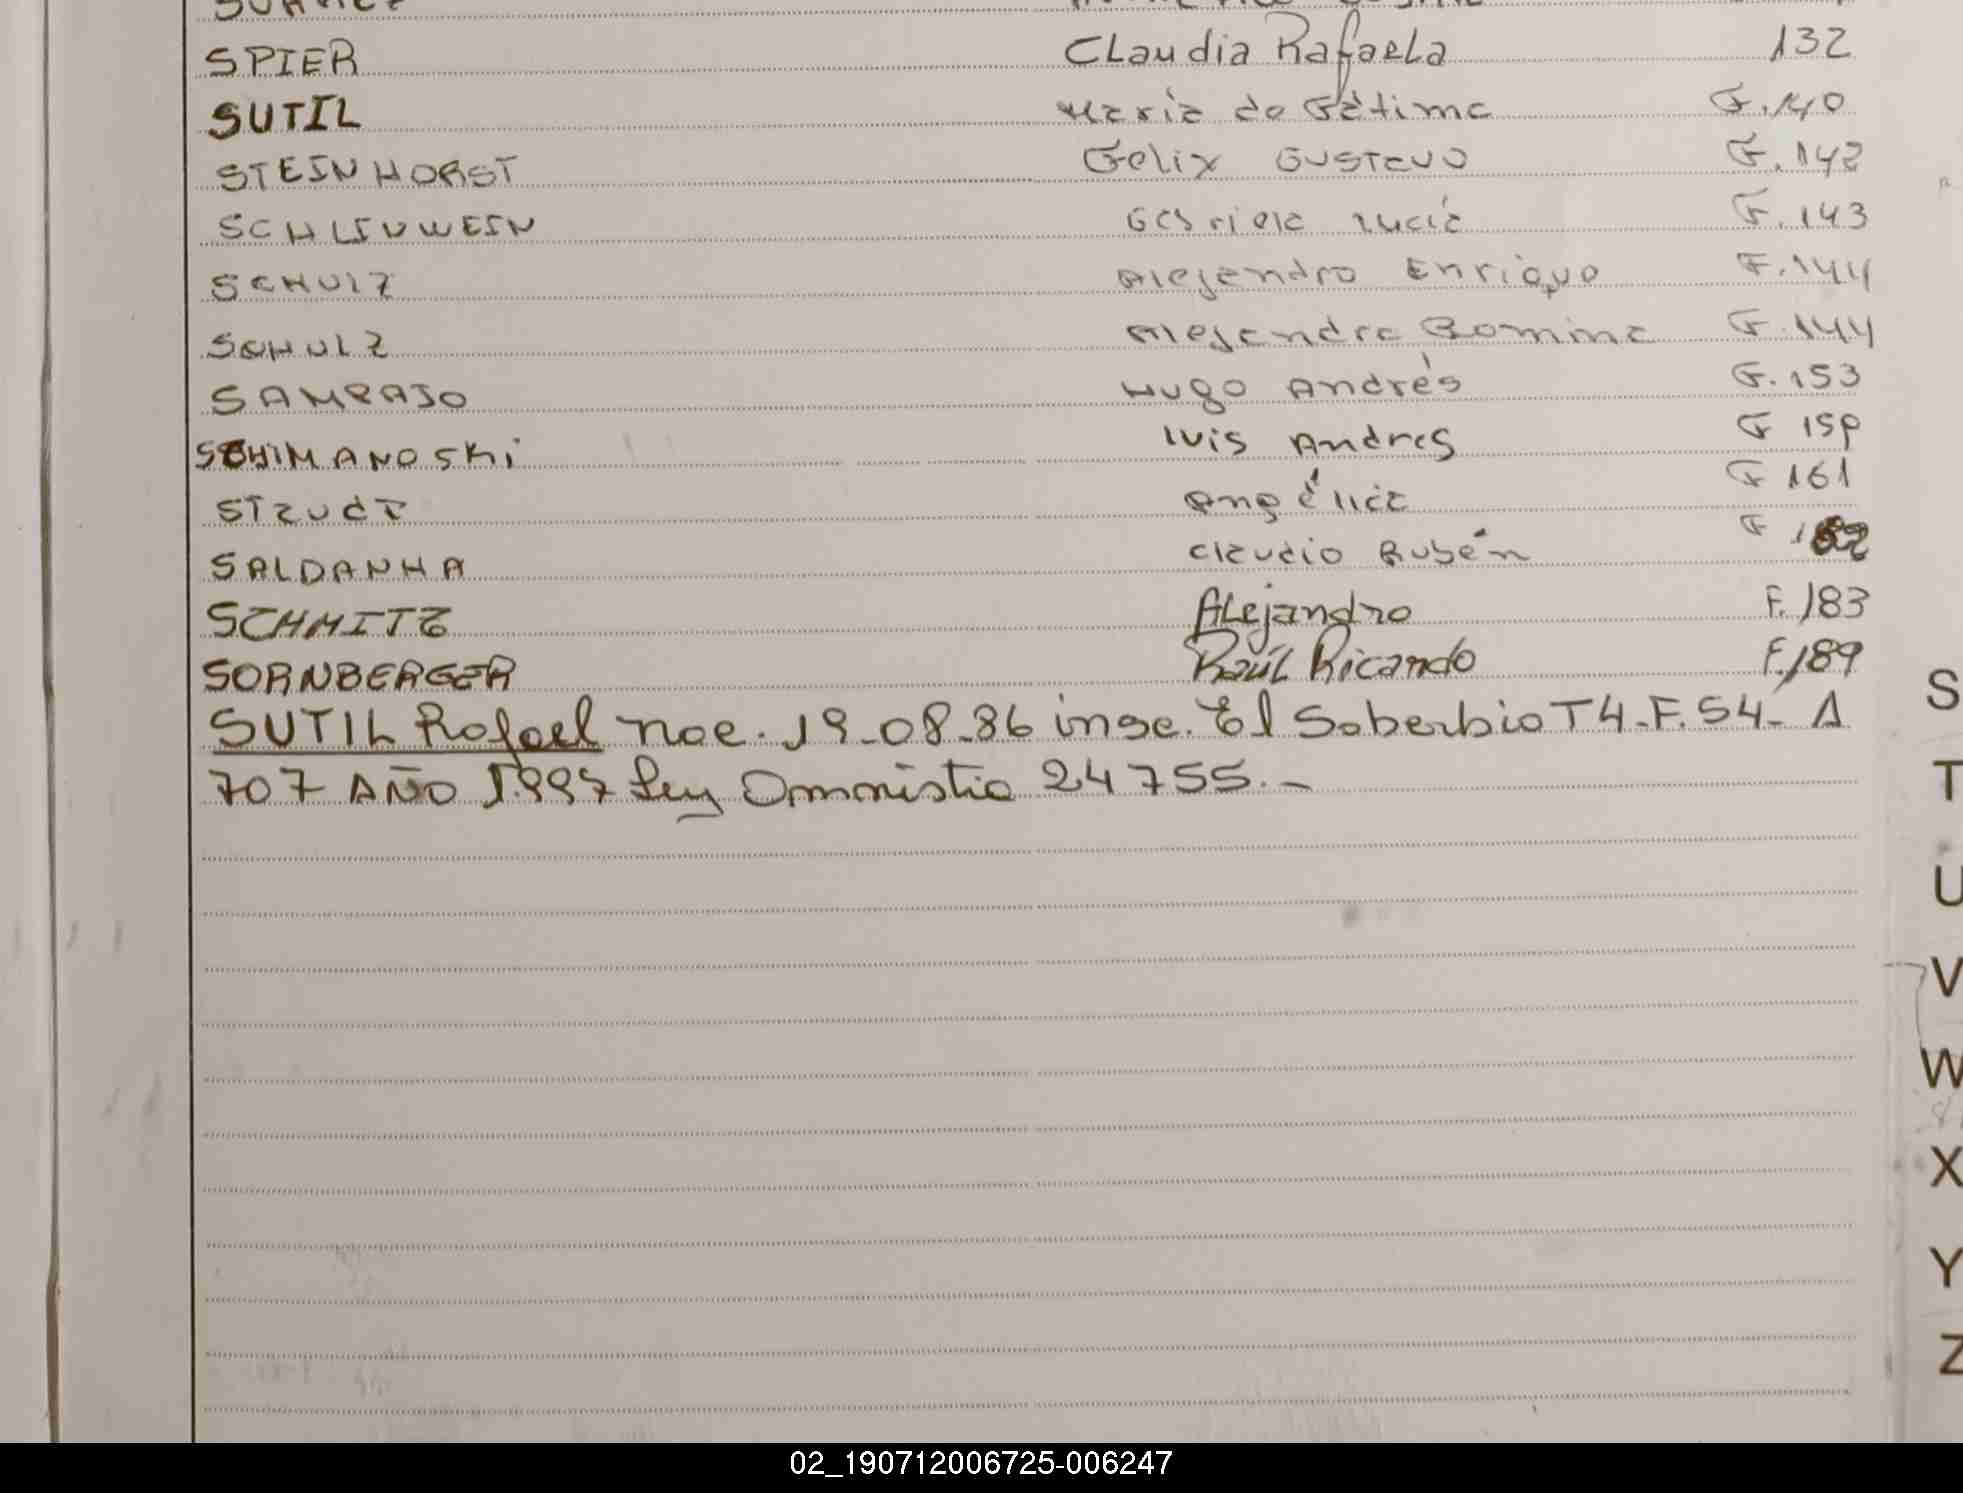 SPIER Claudia Rafaela 132
SUTIL Maria de Fátima F.140
STEINHORST Felix Gustavo F.142
SCHLINWEIN Gabriela Lucía F.143
SCHULZ Alejandro Enrique F.144
SCHULZ Alejandra Romina F.144
SAMPAIO Hugo Andrés F.153
SCHIMANOSKI Luis Andres F 159
STRUCT Angélica F 161
SALDANHA Claudio Rubén F
SCHMITZ Alejandro F.183
SORNBERGER Raúl Ricardo F.189
SUTIL Rafael nac. 19-08-86 insc. El Soberbio T4-F.54- A
707 AÑO 1.997 Ley Omnistia 24755.-
S
T
U
V
W
X
Y
Z
02_190712006725-006247